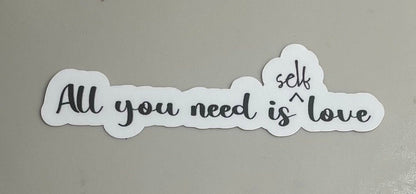 self
All you need is ^ love